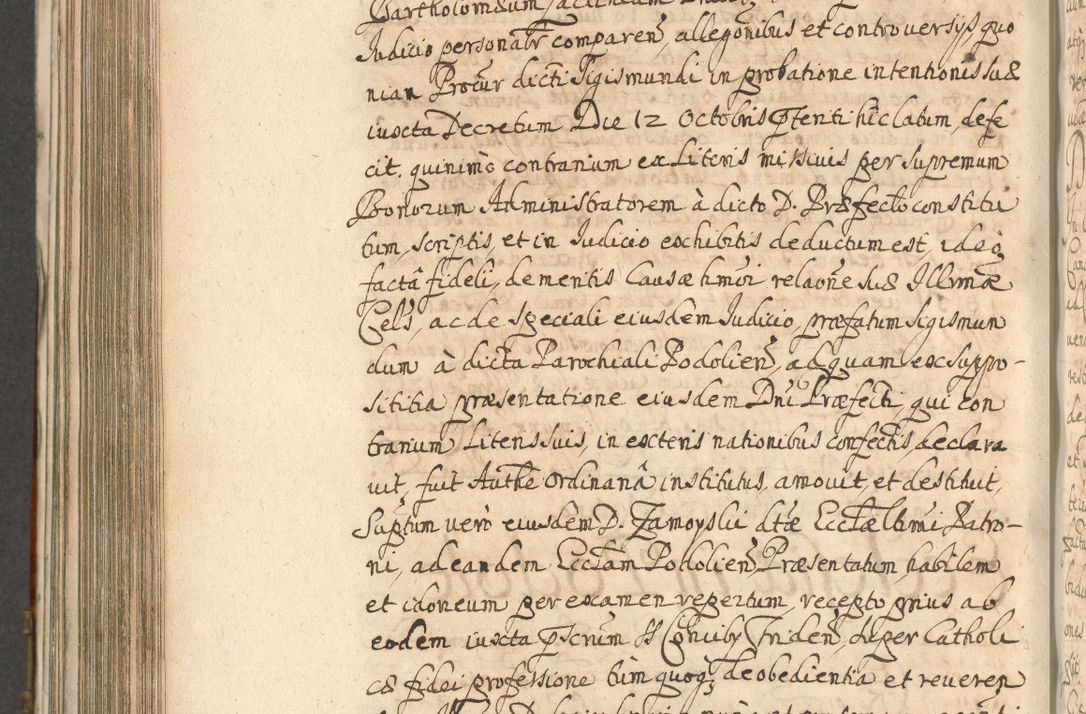 Judicio personalr comparen, allegonibus et controversijs quo
niam Procur dicti Sigismundi in probatione intentionis suæ
iuxta Decretum Die 12 Octobris pstenti hic latum, defe
cit, quinimò contrarium ex Literis missivis per supremum
Bonorum Administratorem à dicto D. Præfecto constitu
tum, scriptis, et in Judicio exhibitis deductum est, ideò
factâ fideli, de meritis Causæ hmoi relaone suæ Illvmæ
Celsi, ac de speciali eiusdem Judicio, præfatum Sigismun
dum à dicta Parochiali Podolien, ad quam ex suppo-
sititia præsentatione eiusdem Dni Præfecti, qui con
trarium Literis suis, in exteris nationibus confectis declara
vit, fuit Authe Ordinariâ institutus, amovit, et destituit,
Suptum verò eiusdem D. Zamoyslii dtæ Ecclæ ltimi Patro-
ni, ad eandem Ecclam Podolien Præsentatum, habilem
et idoneum per examen repertum, recepto prius ab
eodem iuxta pscrum SS Conciliy Triden, super Catholi
cæ fidei professione tùm quoq, de obedientia et reveren